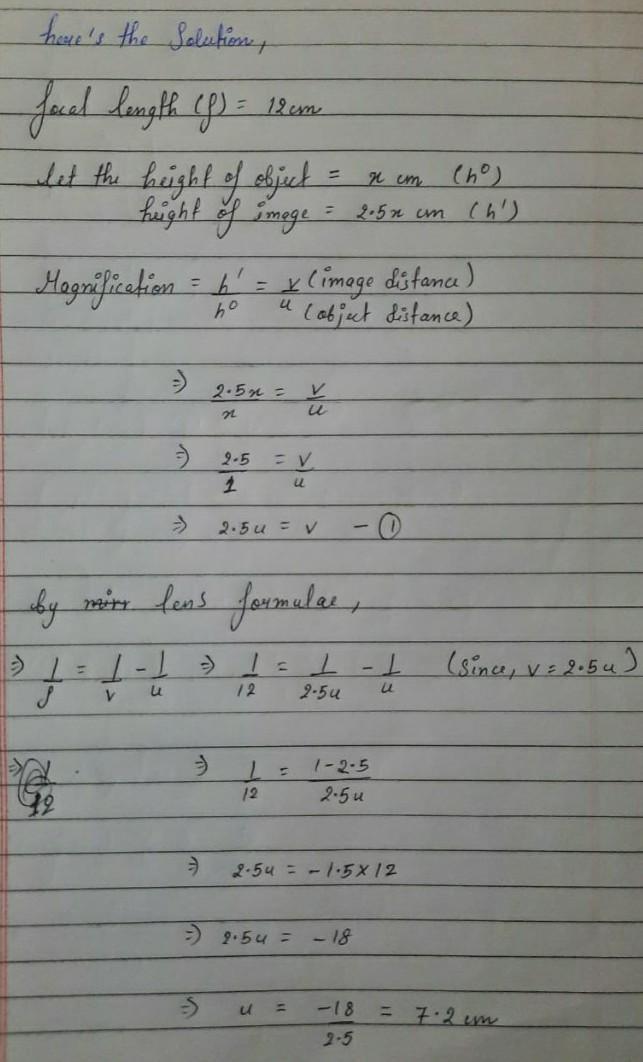 here's the Solution,
focal length (f) = 12cm
let the height of object = x cm (h⁰)
height of image = 2.5x cm (h')
Magnification = h'/h⁰ = v/u (image distance) (object distance)
⇒ 2.5x/x = v/u
⇒ 2.5/1 = v/u
⇒ 2.5u = v - ①
by mirr lens formulae,
⇒ 1/f = 1/v - 1/u ⇒ 1/12 = 1/2.5u - 1/u (Since, v = 2.5u)
⇒ 1/12 = 1-2.5/2.5u
⇒ 2.5u = -1.5×12
⇒ 2.5u = -18
⇒ u = -18/2.5 = 7.2 cm